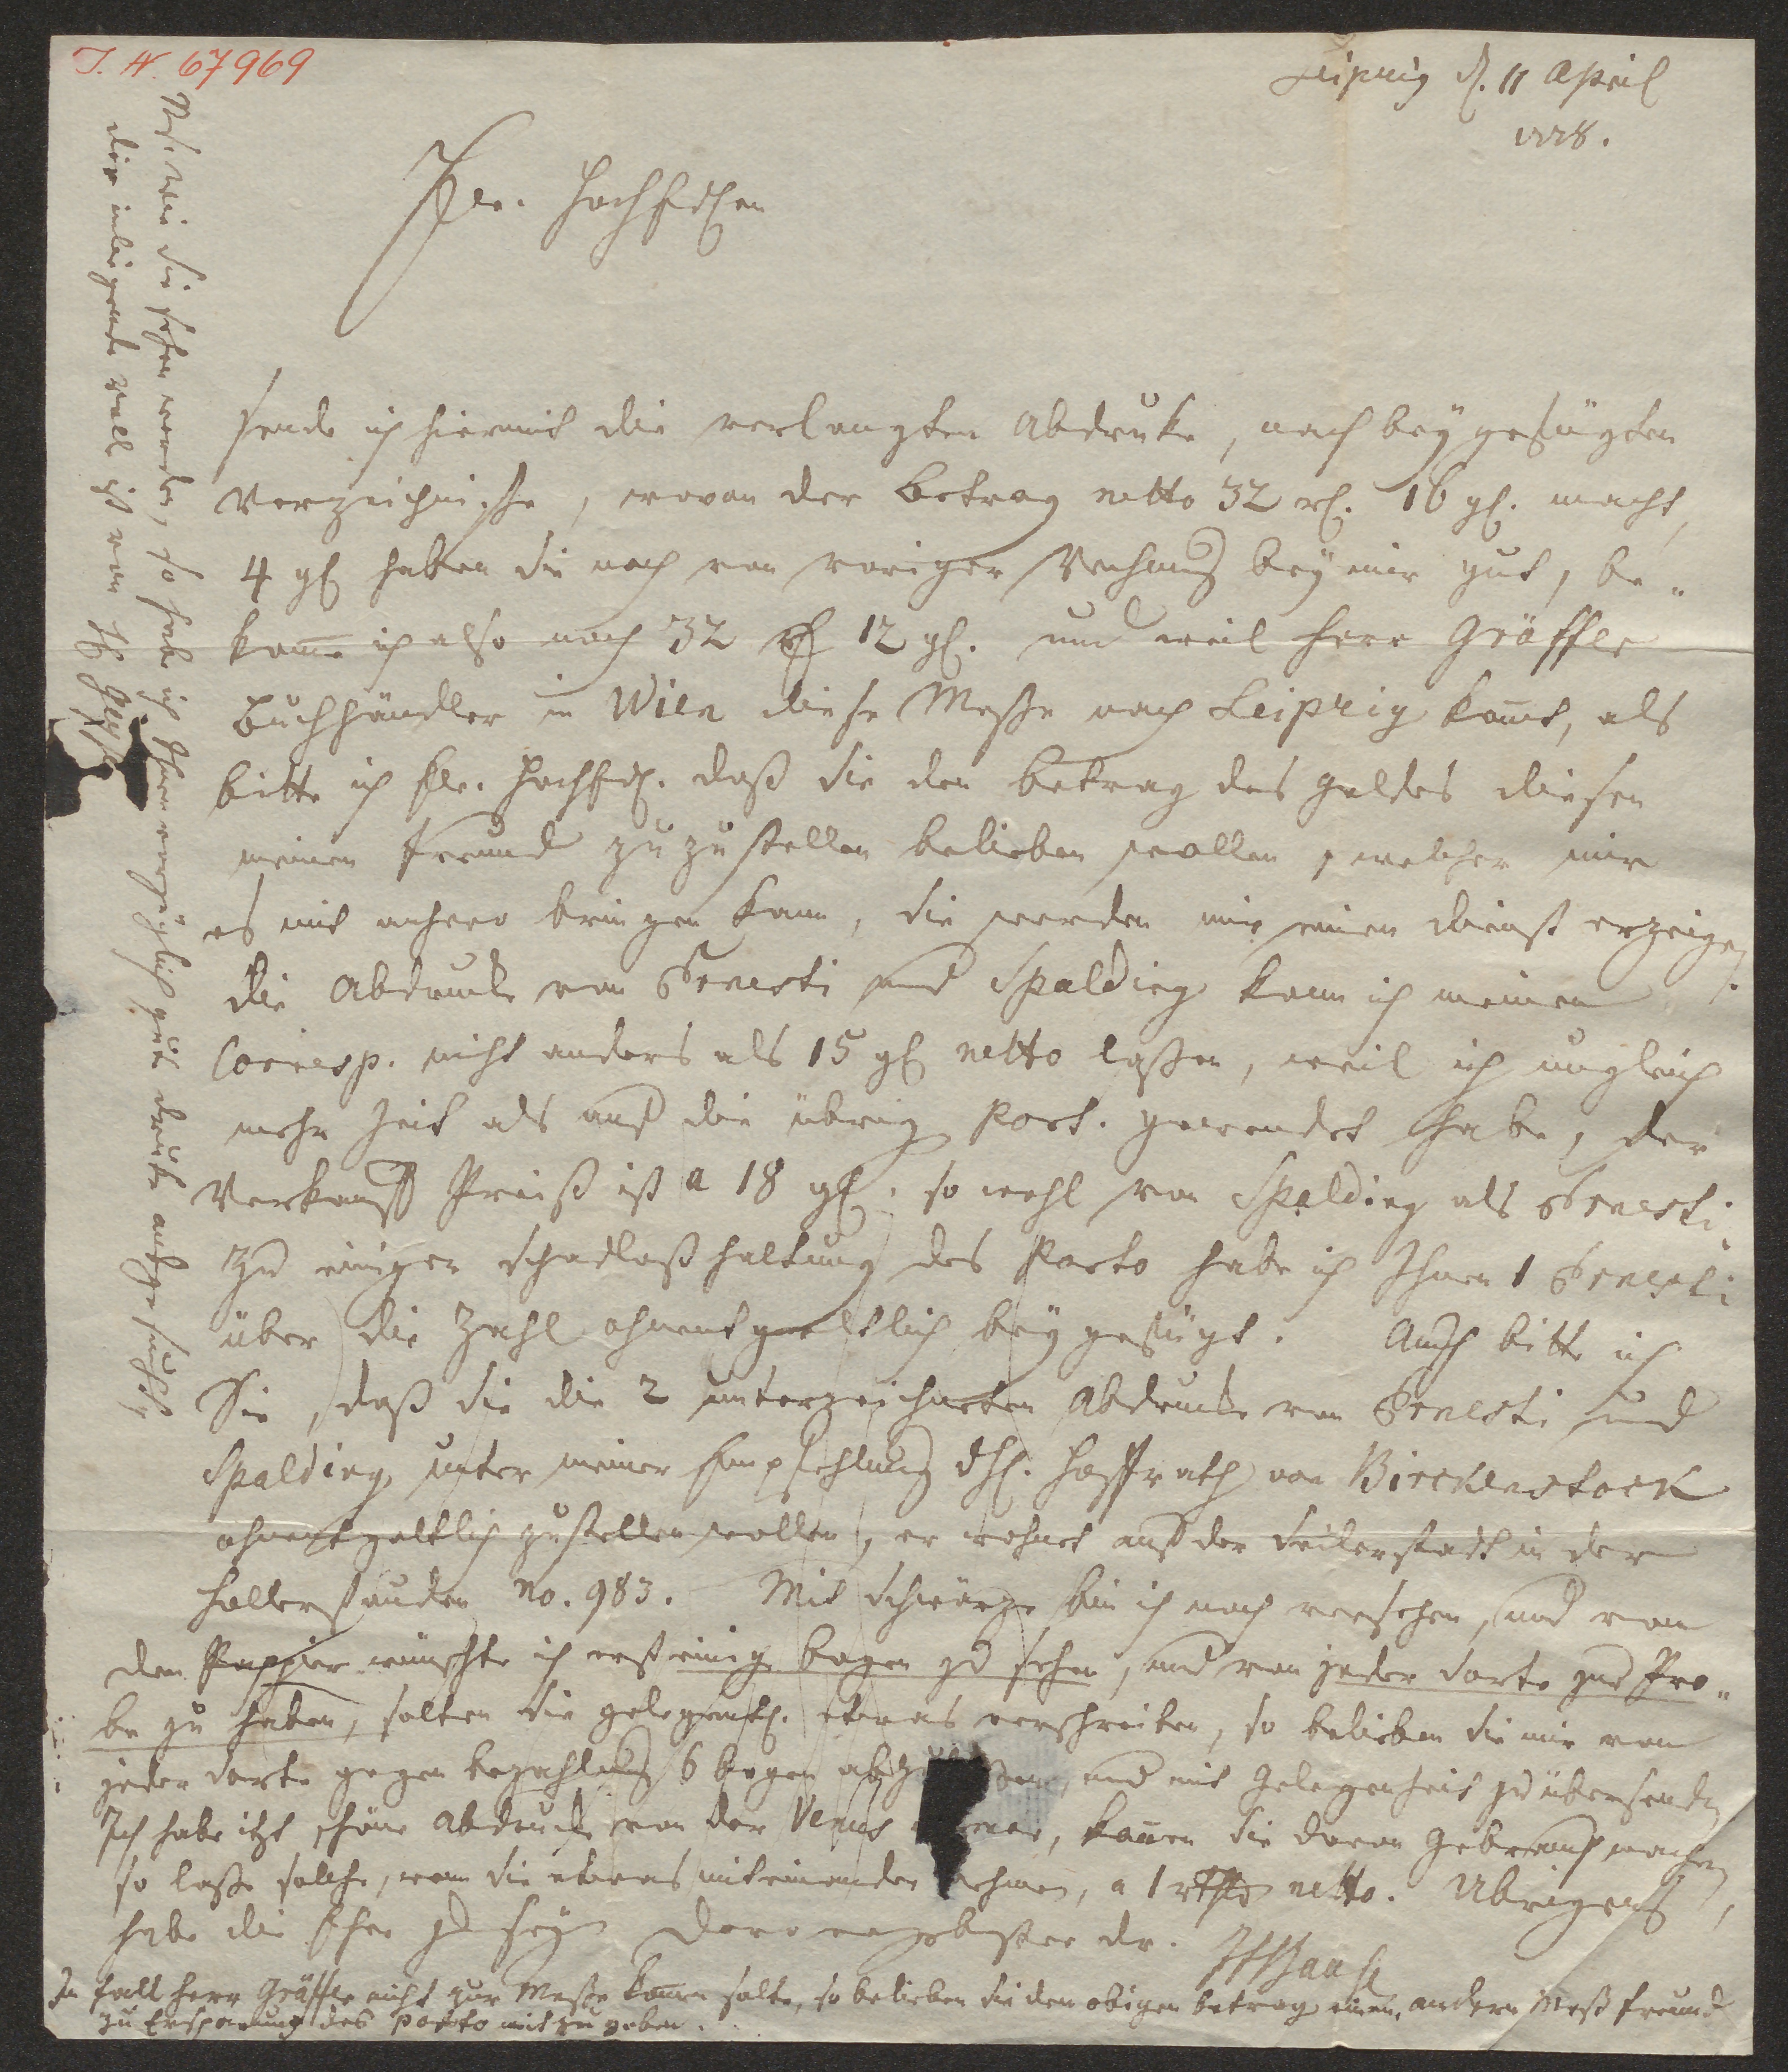 I. N. 67969
Leipzig d. 11 April
1778.
Ew. HochEdlen
sende ich hiermit die verlangten Abdruke, nach beygefügten
Verzeichnisse, wovon der Betrag netto 32 rl. 16 gl. macht,
4 gl haben Sie noch von voriger Rechnung bey mir gut, be-
komme ich also noch 32 rl 12 gl. und weil Herr Gräffer
Buchhändler in Wien diese Messe nach Leipzig komt, als
bitte ich Ew. HochEdl. daß Sie den Betrag des Geldes diesen
meinen Freund zuzustellen belieben wollen, welcher mir
es mit anhero bringen kann, Sie werden mir einen Dienst erzeigen.
Die Abdrucke von Ernesti und Spalding kann ich meinen
Corresp. nicht anders als 15 gl netto laßen, weil ich ungleich
mehr Zeit als auf die übrig Port. gewendet habe, der
Verkauff Preiß ist a 18 gl. so wohl von Spalding als Ernesti.
Zu einiger Schadloßhaltung des Porto habe ich Ihnen 1 Ernesti
über die Zahl ohnentgeltlich bey gefügt. Auch bitte ich
Sie, daß Sie die 2 unterzeichneten Abdrucke von Ernesti und
Spalding unter meiner Empfehlung H. Hoffrath von Birckenstock
ohnentgeltlich zustellen wollen, er wohnt auf der Seilerstadt in der
No. 983. Mit Schwärze bin ich noch versehen, und von
den Pappier wünschte ich erst einige Bogen zu sehen, und von jeder Sorte zur Pro-
be zu haben, solten Sie gelegentl. etwas verschreiben, so belieben Sie mir von
jeder Sorte gegen Bezahlung 6 Bogen und mit Gelegenheit zu übersenden
Ich habe itzt schöne Abdrucke von der Venus können Sie davon Gebrauch machen,
so laße solche, wenn Sie etwas miteinander nehmen, a 1 rthlr netto. Übrigens
habe die Ehre zu seyn Dero ergebenster Dr. JFBause
In Fall Herr Gräffer nicht zur Messe kommen solte, so belieben Sie den obigen Betrag einen andern Meß Freund
zu Ersparung des Porto mit zu geben.
NB. wie Sie sehen werden, so habe ich Ihnen vorzüglich gute Drücke ausgesucht,